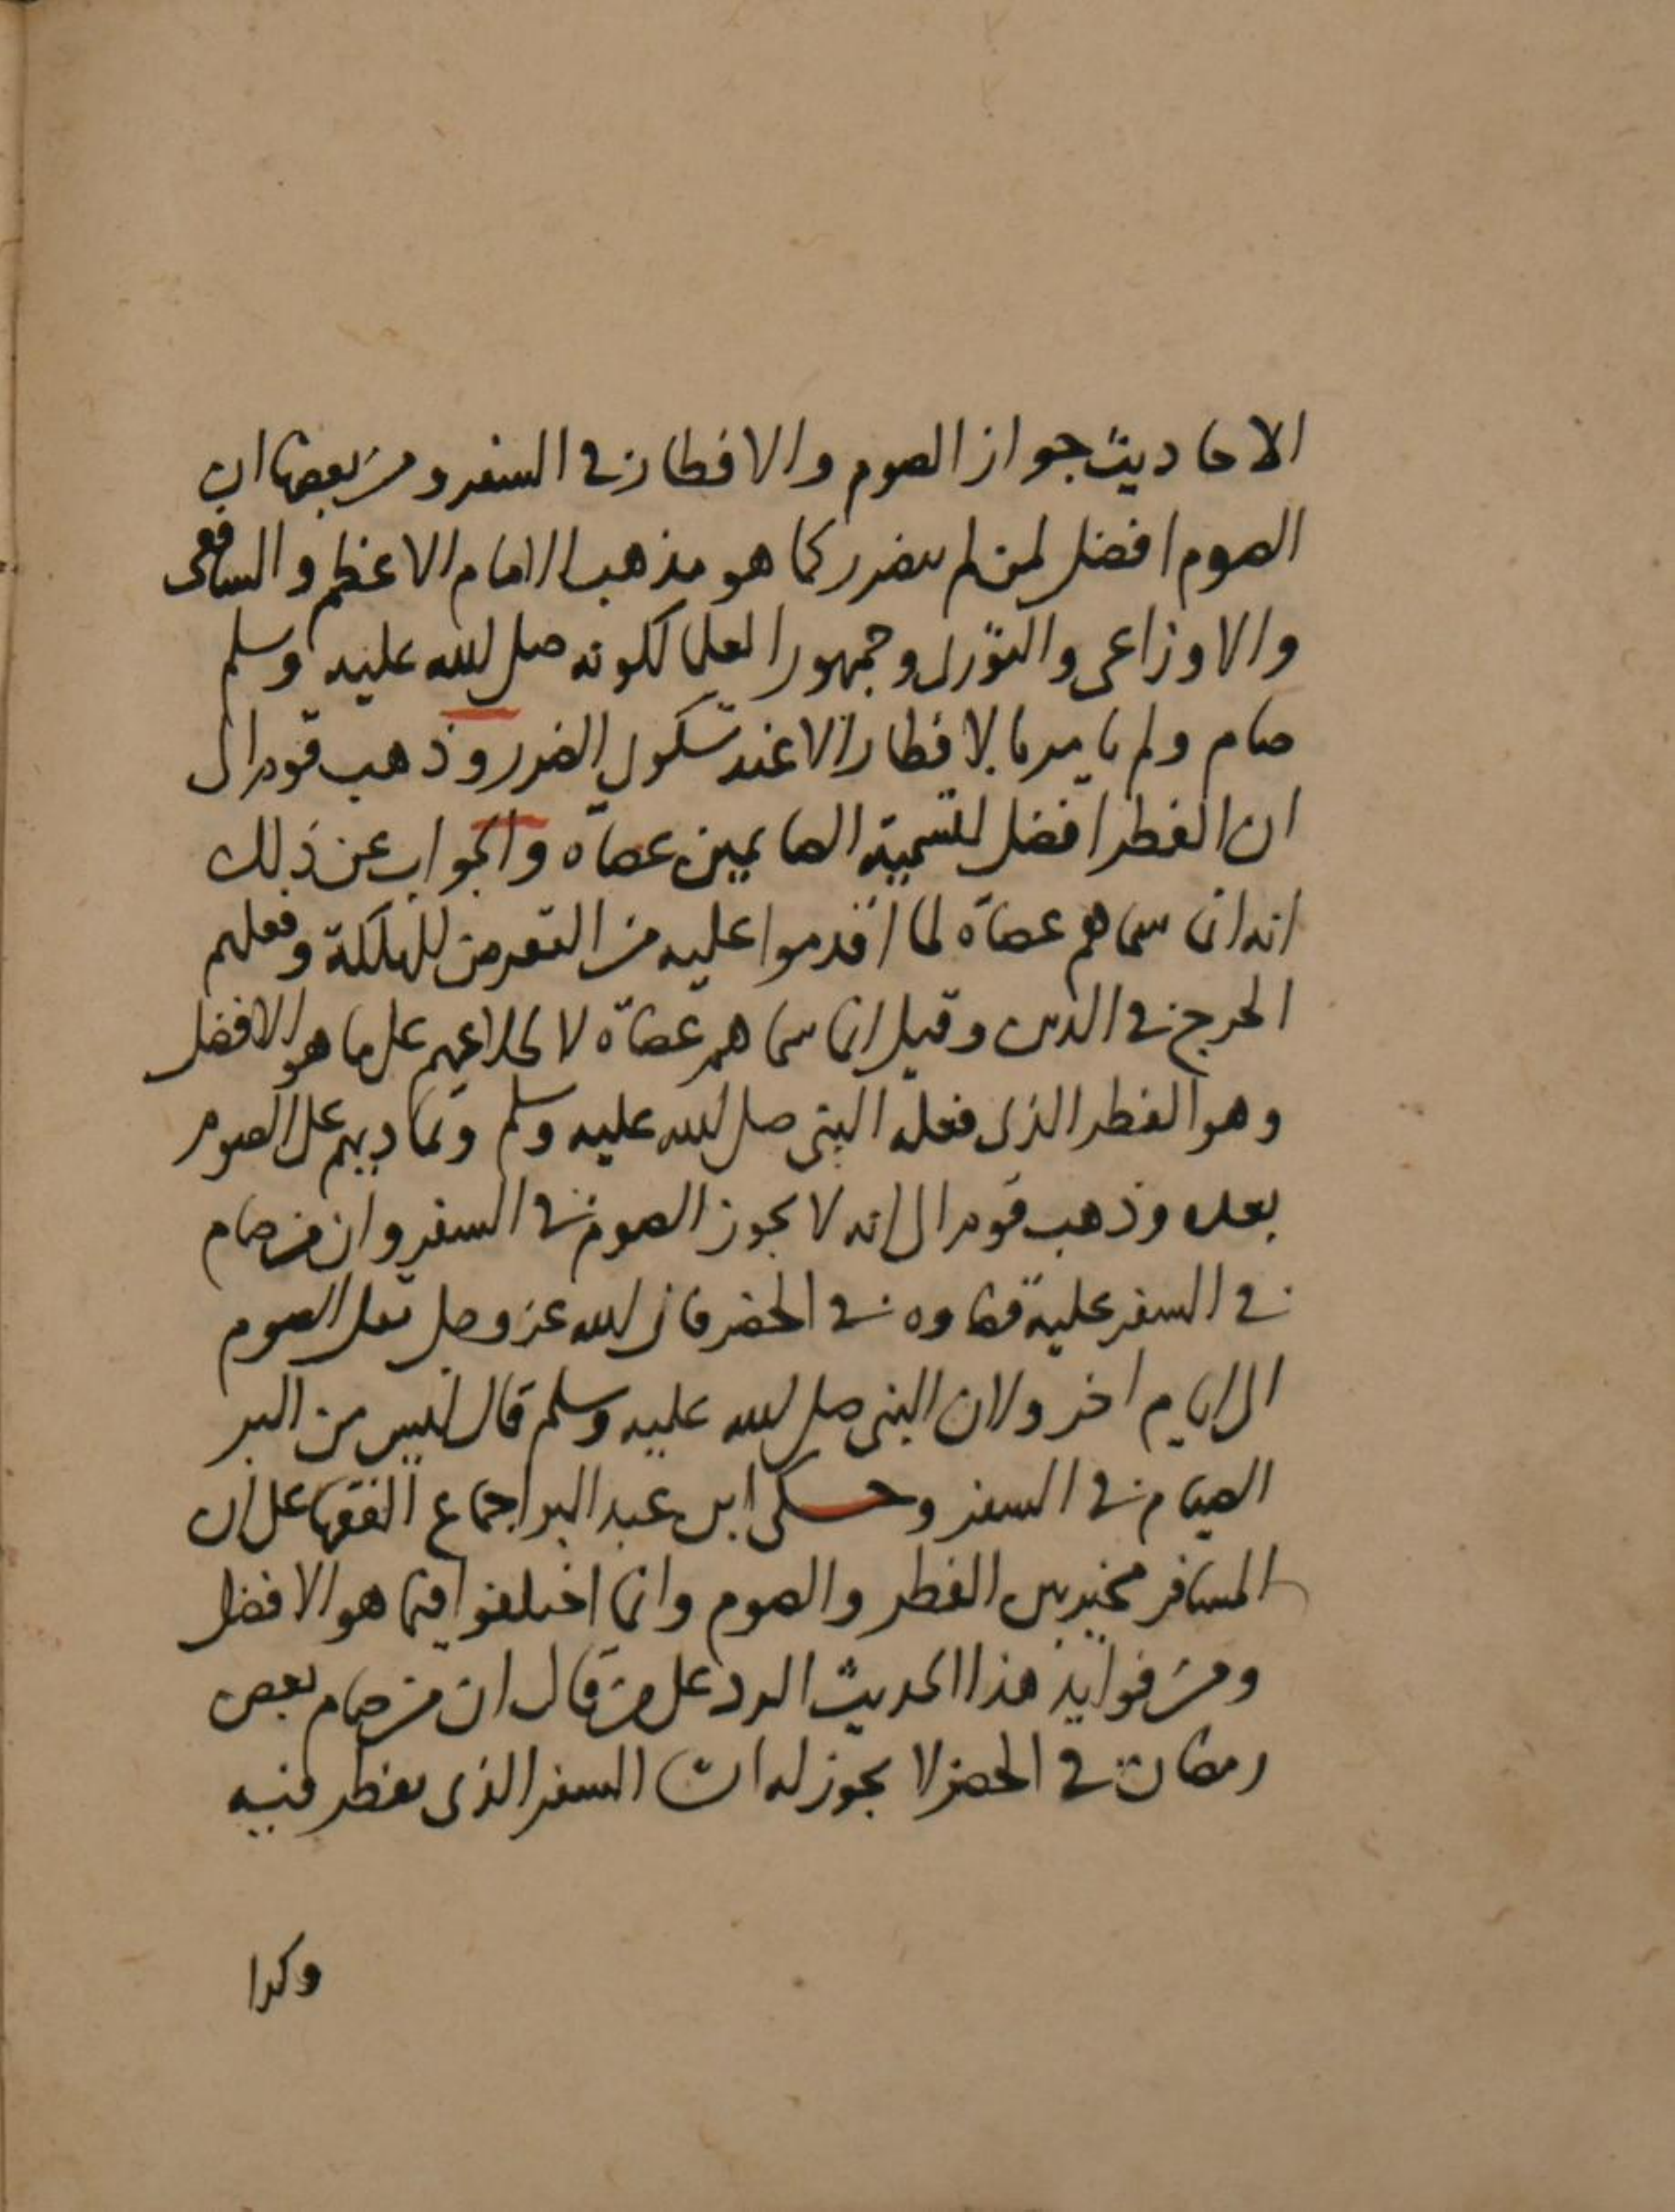 الاحاديث جواز الصوم والافطار في السفر ومن بعضها ان
الصوم افضل لمن لم يتضرر كما هو مذهب الامام الاعظم والشافعى
والاوزاعى والثورى وجمهور العلما لكونه صلى الله عليه وسلم
صام ولم يامر بالافطار الا عند شكوى الضرر وذهب قوم الى
ان الفطر افضل لتسمية الصايمين عصاة والجواب عن ذلك
انه انما سماهم عصاة لما اقدموا عليه من التعرض للهلكة وفعلهم
الحرج في الدين وقيل انما سماهم عصاة لا على ما هو الافضل
وهو الفطر الذى فعله النبى صلى الله عليه وسلم وتماديهم على الصوم
بعده وذهب قوم الى انه لا يجوز الصوم في السفر وان من صام
في السفر عليه قضاوه في الحضر فان الله عز وجل نقل الصوم
الى ايام اخر ولان النبى صلى الله عليه وسلم قال ليس من البر
الصيام في السفر وحكى ابن عبد البر اجماع الفقها على ان
المسافر مخير بين الفطر والصوم وانما اختلفوا فيما هو الافضل
ومن فوايد هذا الحديث الرد على من قال ان من صام بعض
رمضان في الحضر لا يجوز له ان السفر الذى يفطر فيه
وكدا